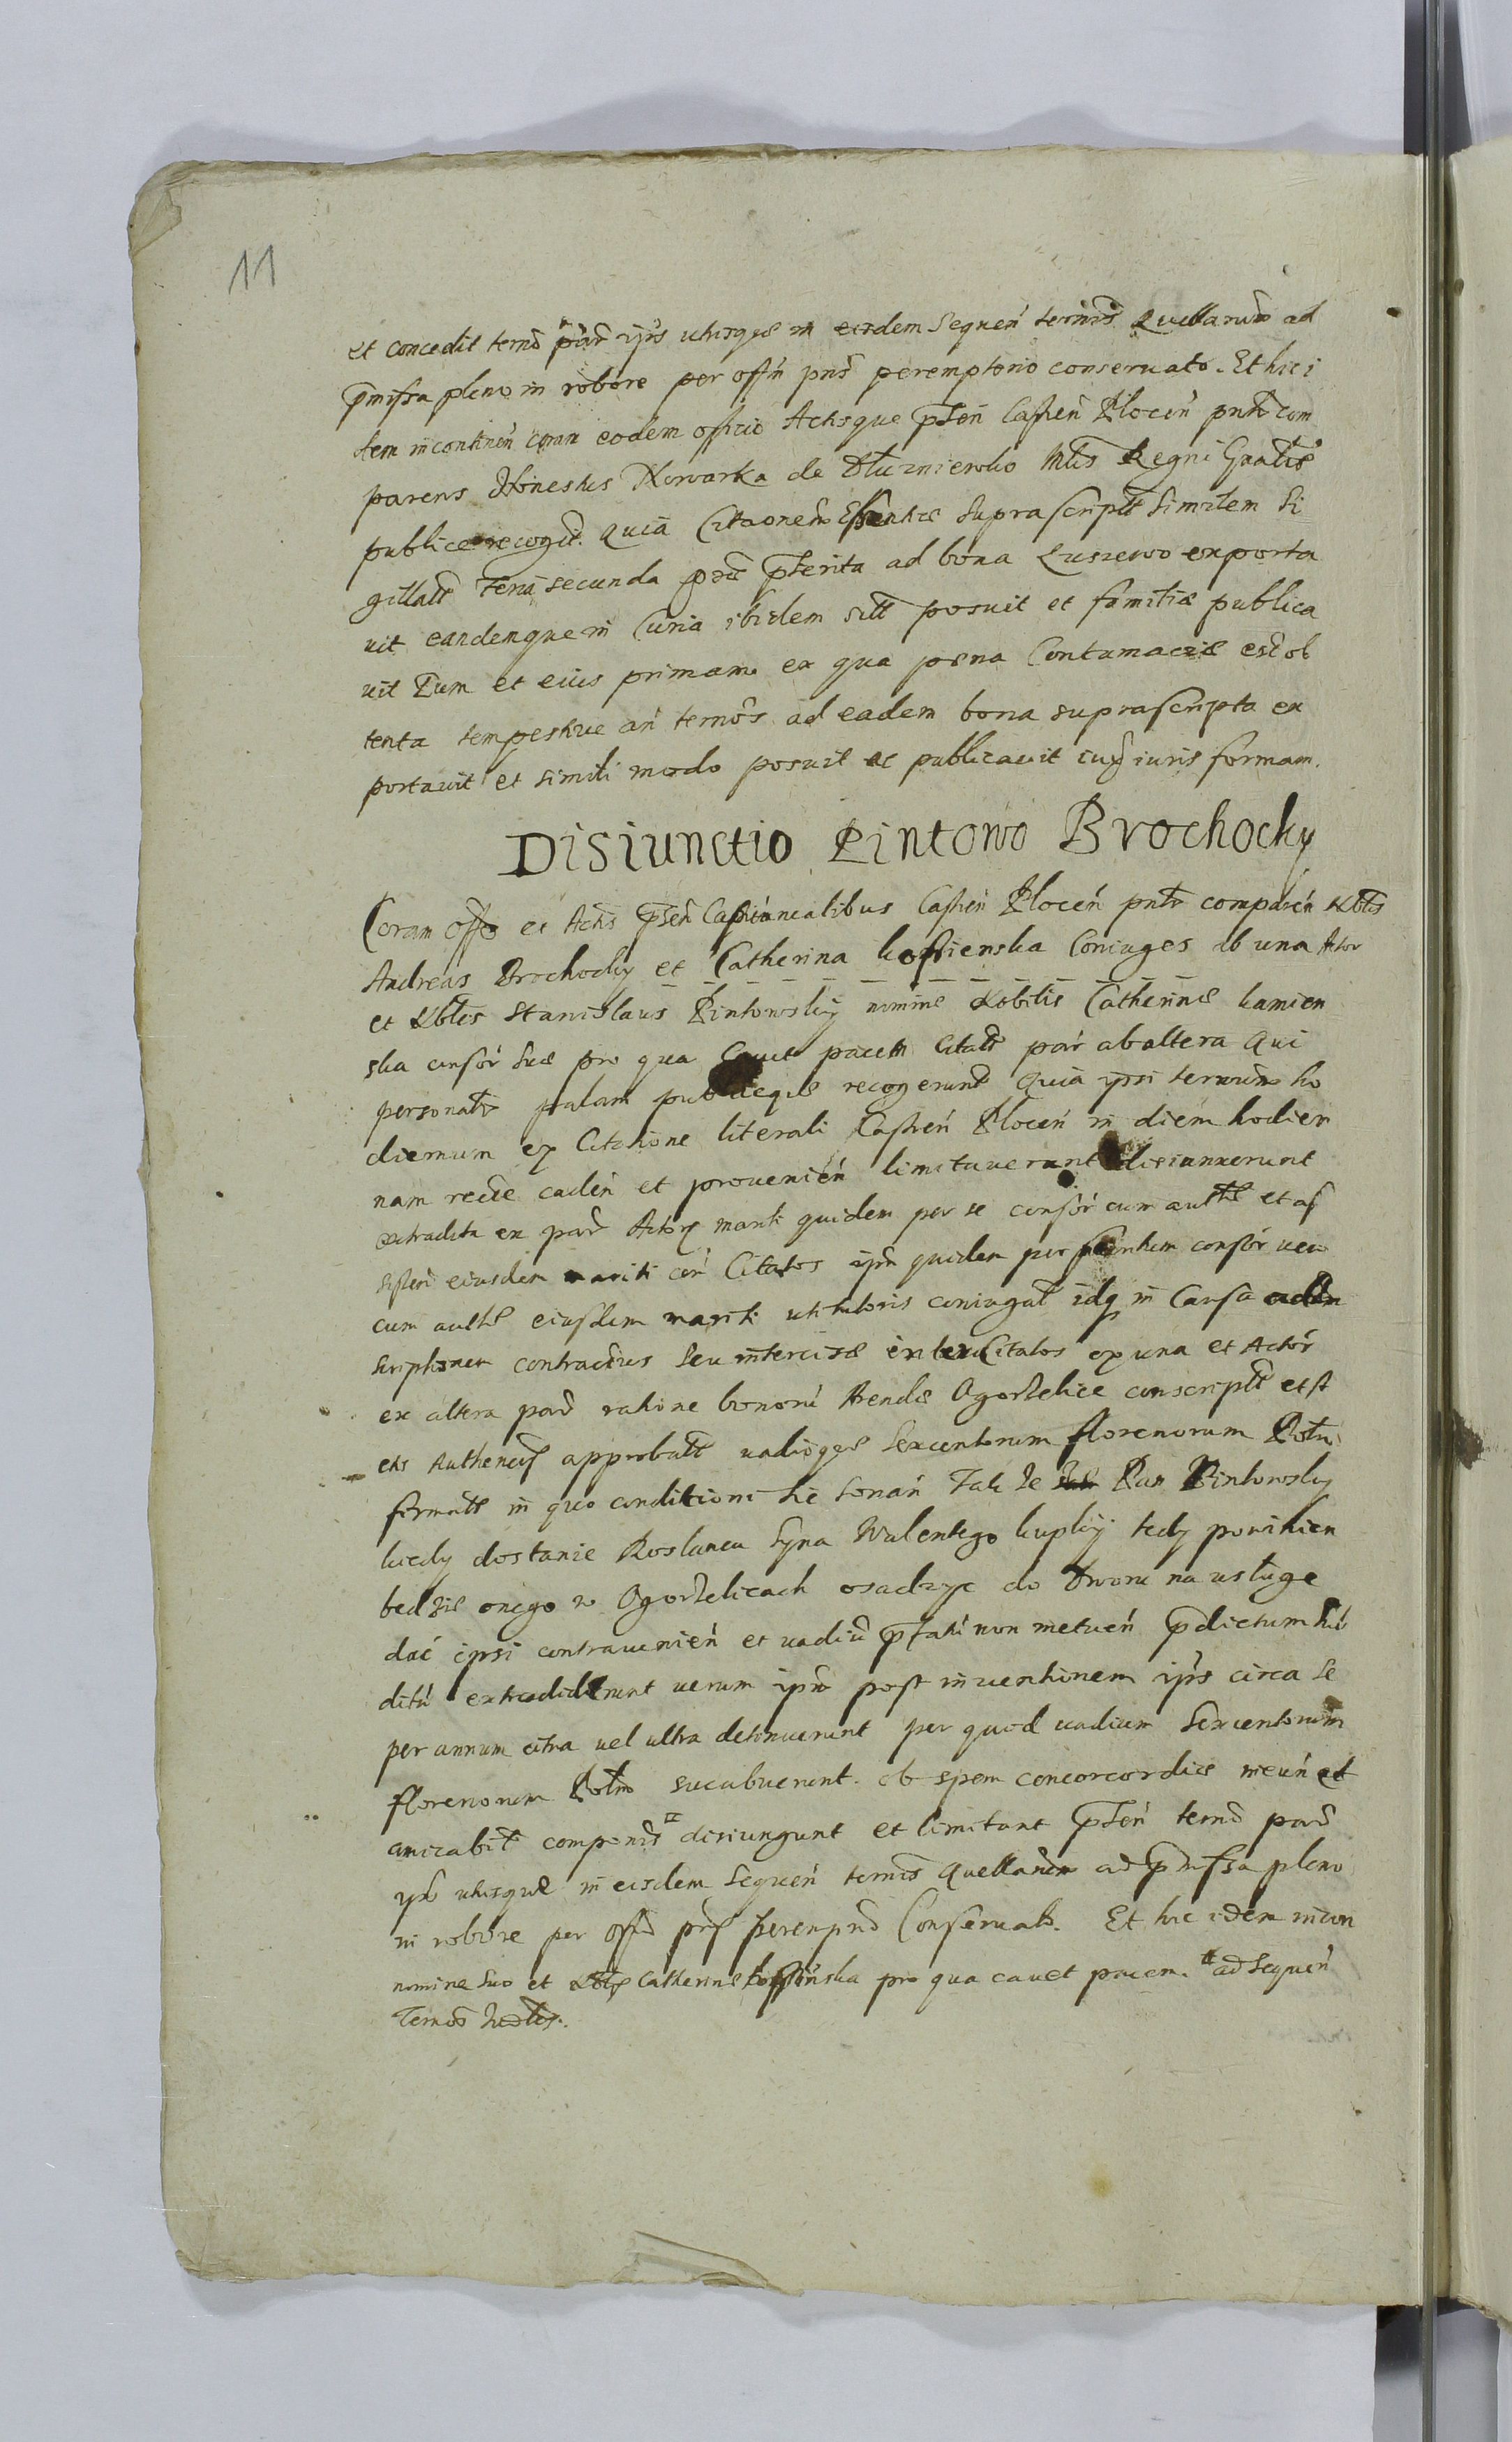 11
et concedit termõ par ip̃is utrisque in eisdem sequeń terminis Quellarum ad
p̃missa pleno in robore per offm pns peremptorio conservato. Et hic i
dem incontineń coram eodem officio Actisque p̃sen Castreń Plocen pnłr com
parens Honestus Nowarka de Dłuzniewko Mlis Regni Gnalis
publice recogt. Quia Citaonem suprascript similem si
gillat feria secunda p̃terita ad bona Luszewo exporta
vit eandemque in Curia ibidem sitt posuit et familiæ publica
vit Tum et eius primam ex qua pœna Contumaciæ est ob
tenta tempestive an termos ad eadem bona suprascripta ex
portavit et simili modo posuit et publicavit iux iuris formam.
Disiunctio Pintowo Brochocky
Coram offo et Actis p̃sen Capitanealibus Castreń Plocen pnłr compareń Nbles
Andreas Brochocky et Catherina Kossienska Coniuges ab una Actor
et Nbles Stanislaus Pintowsky nomine Nobilis Catherinæ Kamien
ska consor suæ pro qua pacem Citati par ab altera Qui
personalr palam publiceque recogerunt Quia ipsi terminum ho
diernum ex Citatione literali Castreń Plocen in diem hodier
nam recte cadeń et provenień limitaverunt disiunxerunt
extradita ex par Actorꝫ mariti quidem per se consor cum autte et as
sisten eiusdem mariti con Citatos ipm quidem per consor vero
cum autte eiusdem mariti uti tutoris coniugal idq in Causa
scriptionem contractus seu intercisæ inter Citatos ex una et Actor
ex altera par ratione bonorum Arendæ Ogorzelice conscript et st
approbat vadioque sexcentorum florenorum Poln
firmatt in quo conditioni hic sonań Tak ze Pan Pintowsky
kiedy dostanie Poslanca Syna Walentego kupky tedy powinien
bedzie onego w Ogorzelicach osadzyc do Dworu na usługe
dać ipsi contravenień et vadium non metueń p̃dictum
ditũ extradiderunt verum ipm post inventionem ip̃is circa se
per annum citra vel ultra detinuerunt per quod vadium Sexcentorum
florenorum Polm sucubuerunt. ob spem concorcordiæ ineuń et
amicabilr componeń disiungunt et limitant p̃sen termõ par
utrisque in eisdem sequeń termis Quellarum ad p̃missa pleno
in robore per offm pns peremp Conservato. Et hic idem incon
nomine suo et Nblis Catherinæ Kossienska pro qua cavet pacem. ad sequen
Termos